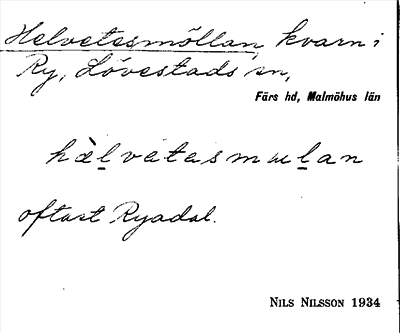 Helvetesmöllan, kvarn i
Ry, Lövestads sn,
Färs hd, Malmöhus län
hæ̀l̲vetesmɯl̲an
oftast Ryadal.
NILS NILSSON 1934